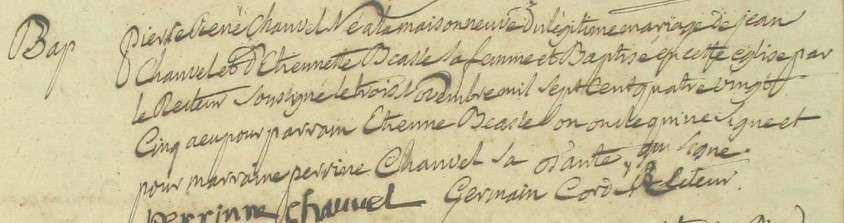 Bap
pierre René Chauvel Né a la maison neuve Du légitime mariage de jean
Chauvel et D'Etiennette Beasse sa femme et Baptise en cette église par
le Recteur soussigné le trois Novembre mil sept Cent quatre vingt
Cinq a eu pour parrain Etienne Beasse son oncle qui ne signe et
pour marraine perrine Chauvel sa tante qui signe
perrinne Chauvel Germain Recteur.